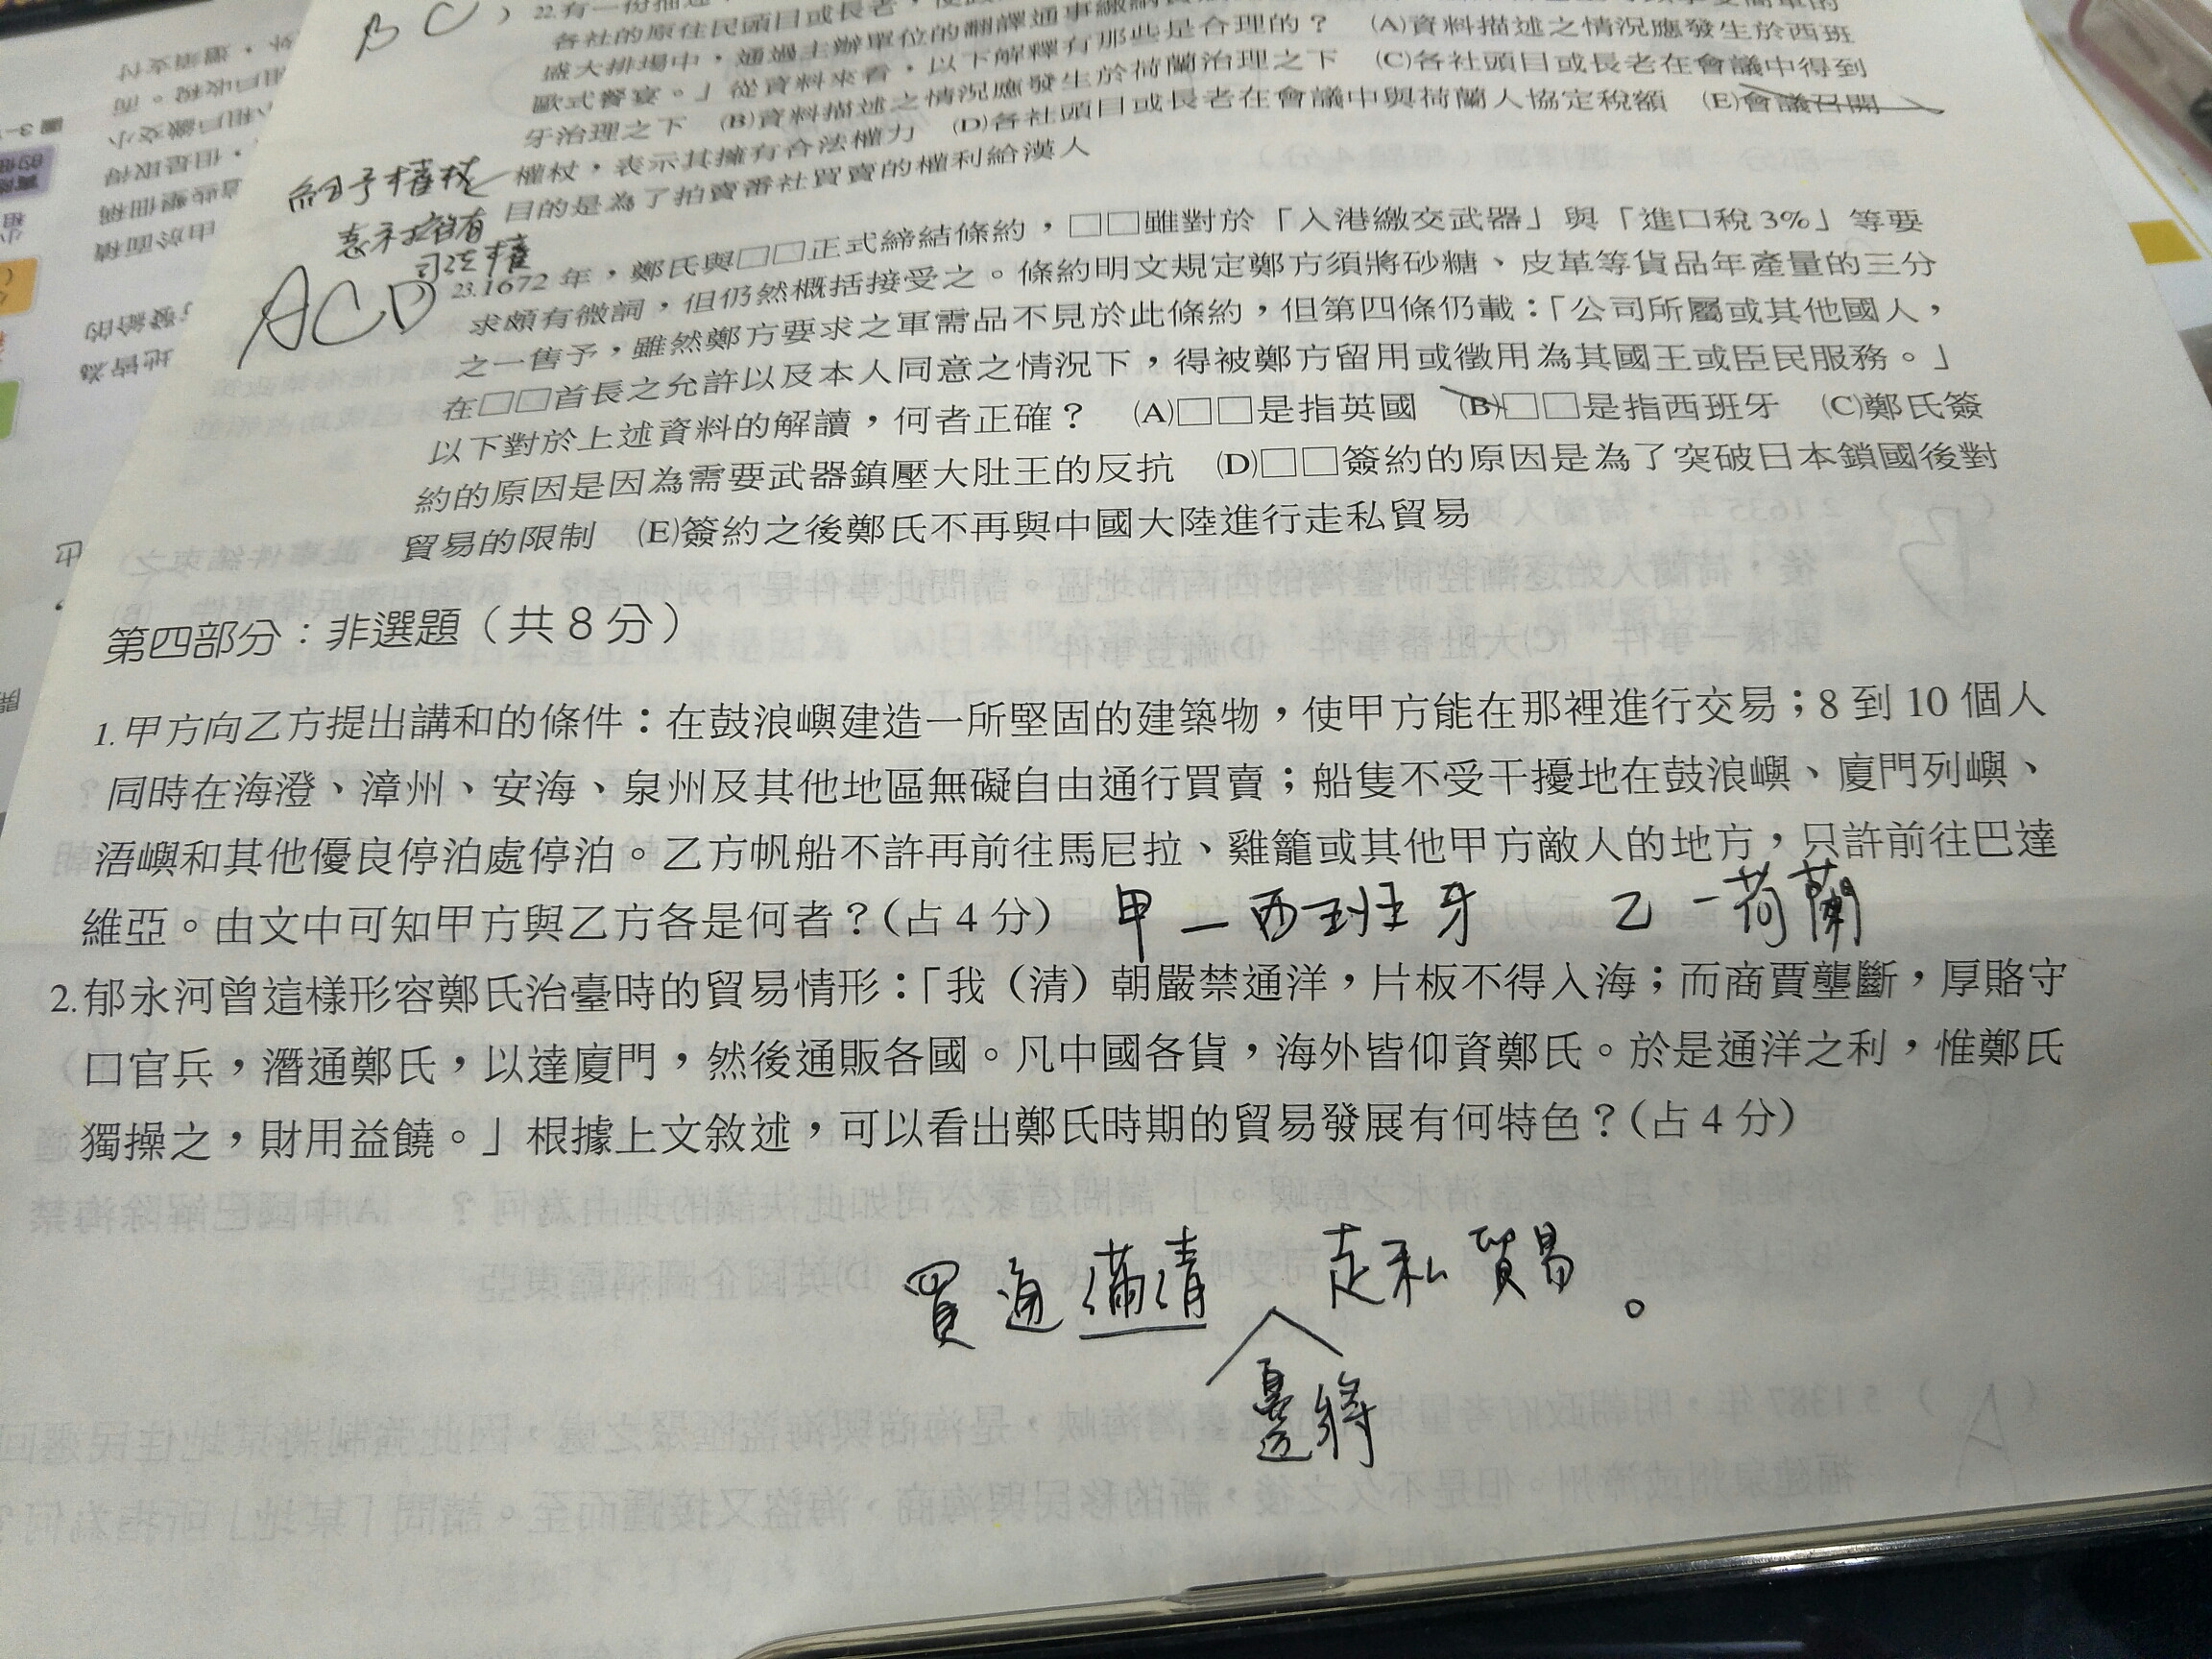 BC ) 22.有一份描述
各社的原住民頭目或長老,
盛大排場中,通過主辦單位的翻譯通事繳納
歐式饗宴。」從資料來看,以下解釋有那些是合理的? (A)資料描述之情況應發生於西班
牙治理之下 (B)資料描述之情況應發生於荷蘭治理之下 (C)各社頭目或長老在會議中得到
權杖,表示其擁有合法權力 (D)各社頭目或長老在會議中與荷蘭人協定稅額 (E)會議召開
目的是為了拍賣番社買賣的權利給漢人
給予權杖
表示擁有
司法權
ACD
23.1672年,鄭氏與□□正式締結條約,□□雖對於「入港繳交武器」與「進口稅3%」等要
求頗有微詞,但仍然概括接受之。條約明文規定鄭方須將砂糖、皮革等貨品年產量的三分
之一售予,雖然鄭方要求之軍需品不見於此條約,但第四條仍載:「公司所屬或其他國人,
在□□首長之允許以及本人同意之情況下,得被鄭方留用或徵用為其國王或臣民服務。」
以下對於上述資料的解讀,何者正確? (A)□□是指英國 (B)□□是指西班牙 (C)鄭氏簽
約的原因是因為需要武器鎮壓大肚王的反抗 (D)□□簽約的原因是為了突破日本鎖國後對
貿易的限制 (E)簽約之後鄭氏不再與中國大陸進行走私貿易
第四部分:非選題(共8分)
1.甲方向乙方提出講和的條件:在鼓浪嶼建造一所堅固的建築物,使甲方能在那裡進行交易;8到10個人
同時在海澄、漳州、安海、泉州及其他地區無礙自由通行買賣;船隻不受干擾地在鼓浪嶼、廈門列嶼、
浯嶼和其他優良停泊處停泊。乙方帆船不許再前往馬尼拉、雞籠或其他甲方敵人的地方,只許前往巴達
維亞。由文中可知甲方與乙方各是何者?(占4分) 甲-西班牙 乙-荷蘭
2.郁永河曾這樣形容鄭氏治臺時的貿易情形:「我(清)朝嚴禁通洋,片板不得入海;而商賈壟斷,厚賂守
口官兵,潛通鄭氏,以達廈門,然後通販各國。凡中國各貨,海外皆仰資鄭氏。於是通洋之利,惟鄭氏
獨操之,財用益饒。」根據上文敘述,可以看出鄭氏時期的貿易發展有何特色?(占4分)
買通滿清 走私貿易。
邊將